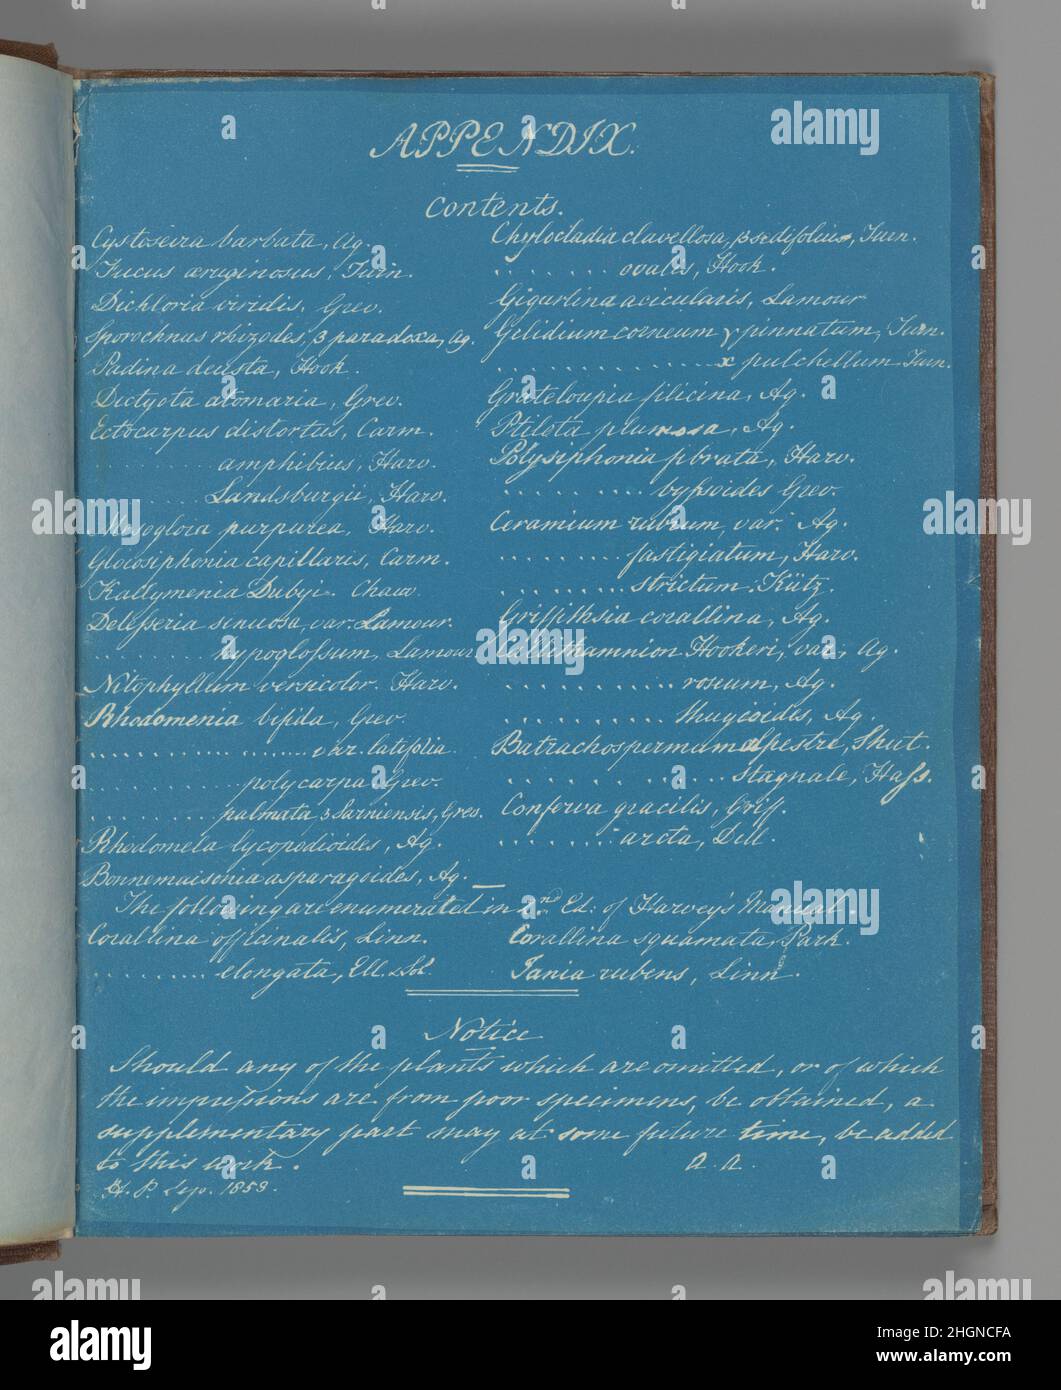 APPENDIX.
Contents.
Cystoseira barbata, Ag.
Fucus æruginosus, Turn.
Dichloria viridis, Grev.
Sporochnus rhizodes, β paradoxa, Ag.
Padina deusta, Hook.
Dictyota atomaria, Grev.
Ectocarpus distortus, Carm.
........ amphibius, Harv.
........ Landsburgii, Harv.
Mesogloia purpurea, Harv.
Gloiosiphonia capillaris, Carm.
Kallymenia Dubyi. Chauv
Delesseria sinuosa, var: Lamour.
........ hypoglossum, Lamour
Nitophyllum versicolor. Harv.
Rhodomenia bifida, Grev.
........ ........ var. latifolia
........ polycarpa Grev.
........ palmata β Sarniensis, Grev.
Rhodomela lycopodioides, Ag.
Bonnemaisonia asparagoides, Ag.
Chylocladia clavellosa, β sedifolius, Turn.
........ ovalis, Hook.
Gigartina acicularis, Lamour
Gelidium corneum γ pinnatum, Turn.
........ x pulchellum Turn.
Grateloupia filicina, Ag.
Ptilota plumosa, Ag.
Polysiphonia fibrata, Harv.
........ byssoides Grev.
Ceramium rubrum, var: Ag.
........ fastigiatum, Harv.
........ strictum. Kütz.
Griffithsia corallina, Ag.
Callithamnion Hookeri, var, Ag.
........ roseum, Ag.
........ thuyoides, Ag.
Batrachospermum alpestre, Shut.
........ stagnale, Hass.
Conferva gracilis, Griff.
........ arcta, Dill.
The following are enumerated in 2nd Ed: of Harvey's Manual.
Corallina officinalis, Linn. Corallina squamata, Park.
........ elongata, Ell. & Sol. Jania rubens, Linn.
Notice
Should any of the plants which are omitted, or of which
the impressions are from poor specimens, be obtained, a
supplementary part may at some future time, be added
to this work. A. A.
H. P. Sep. 1853.
alamy
Image ID: 2HGNCFA
www.alamy.com